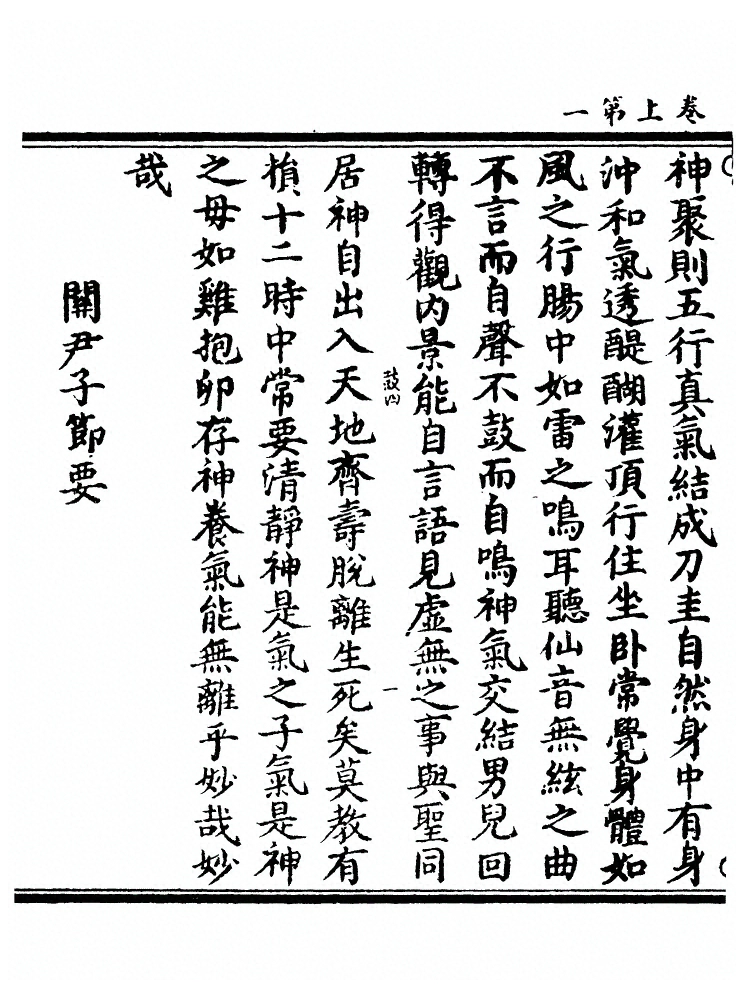 卷上第一
神聚則五行真氣結成刀圭自然身中有身
沖和氣透醍醐灌頂行住坐卧常覺身體如
風之行腸中如雷之鳴耳聽仙音無絃之曲
不言而自聲不鼓而自鳴神氣交結男兒回
轉得觀内景能自言語見虚無之事與聖同
鼓四
一
居神自出入天地齊壽脫離生死矣莫教有
損十二時中常要清靜神是氣之子氣是神
之母如雞抱卵存神養氣能無離乎妙哉妙
哉
關尹子節要